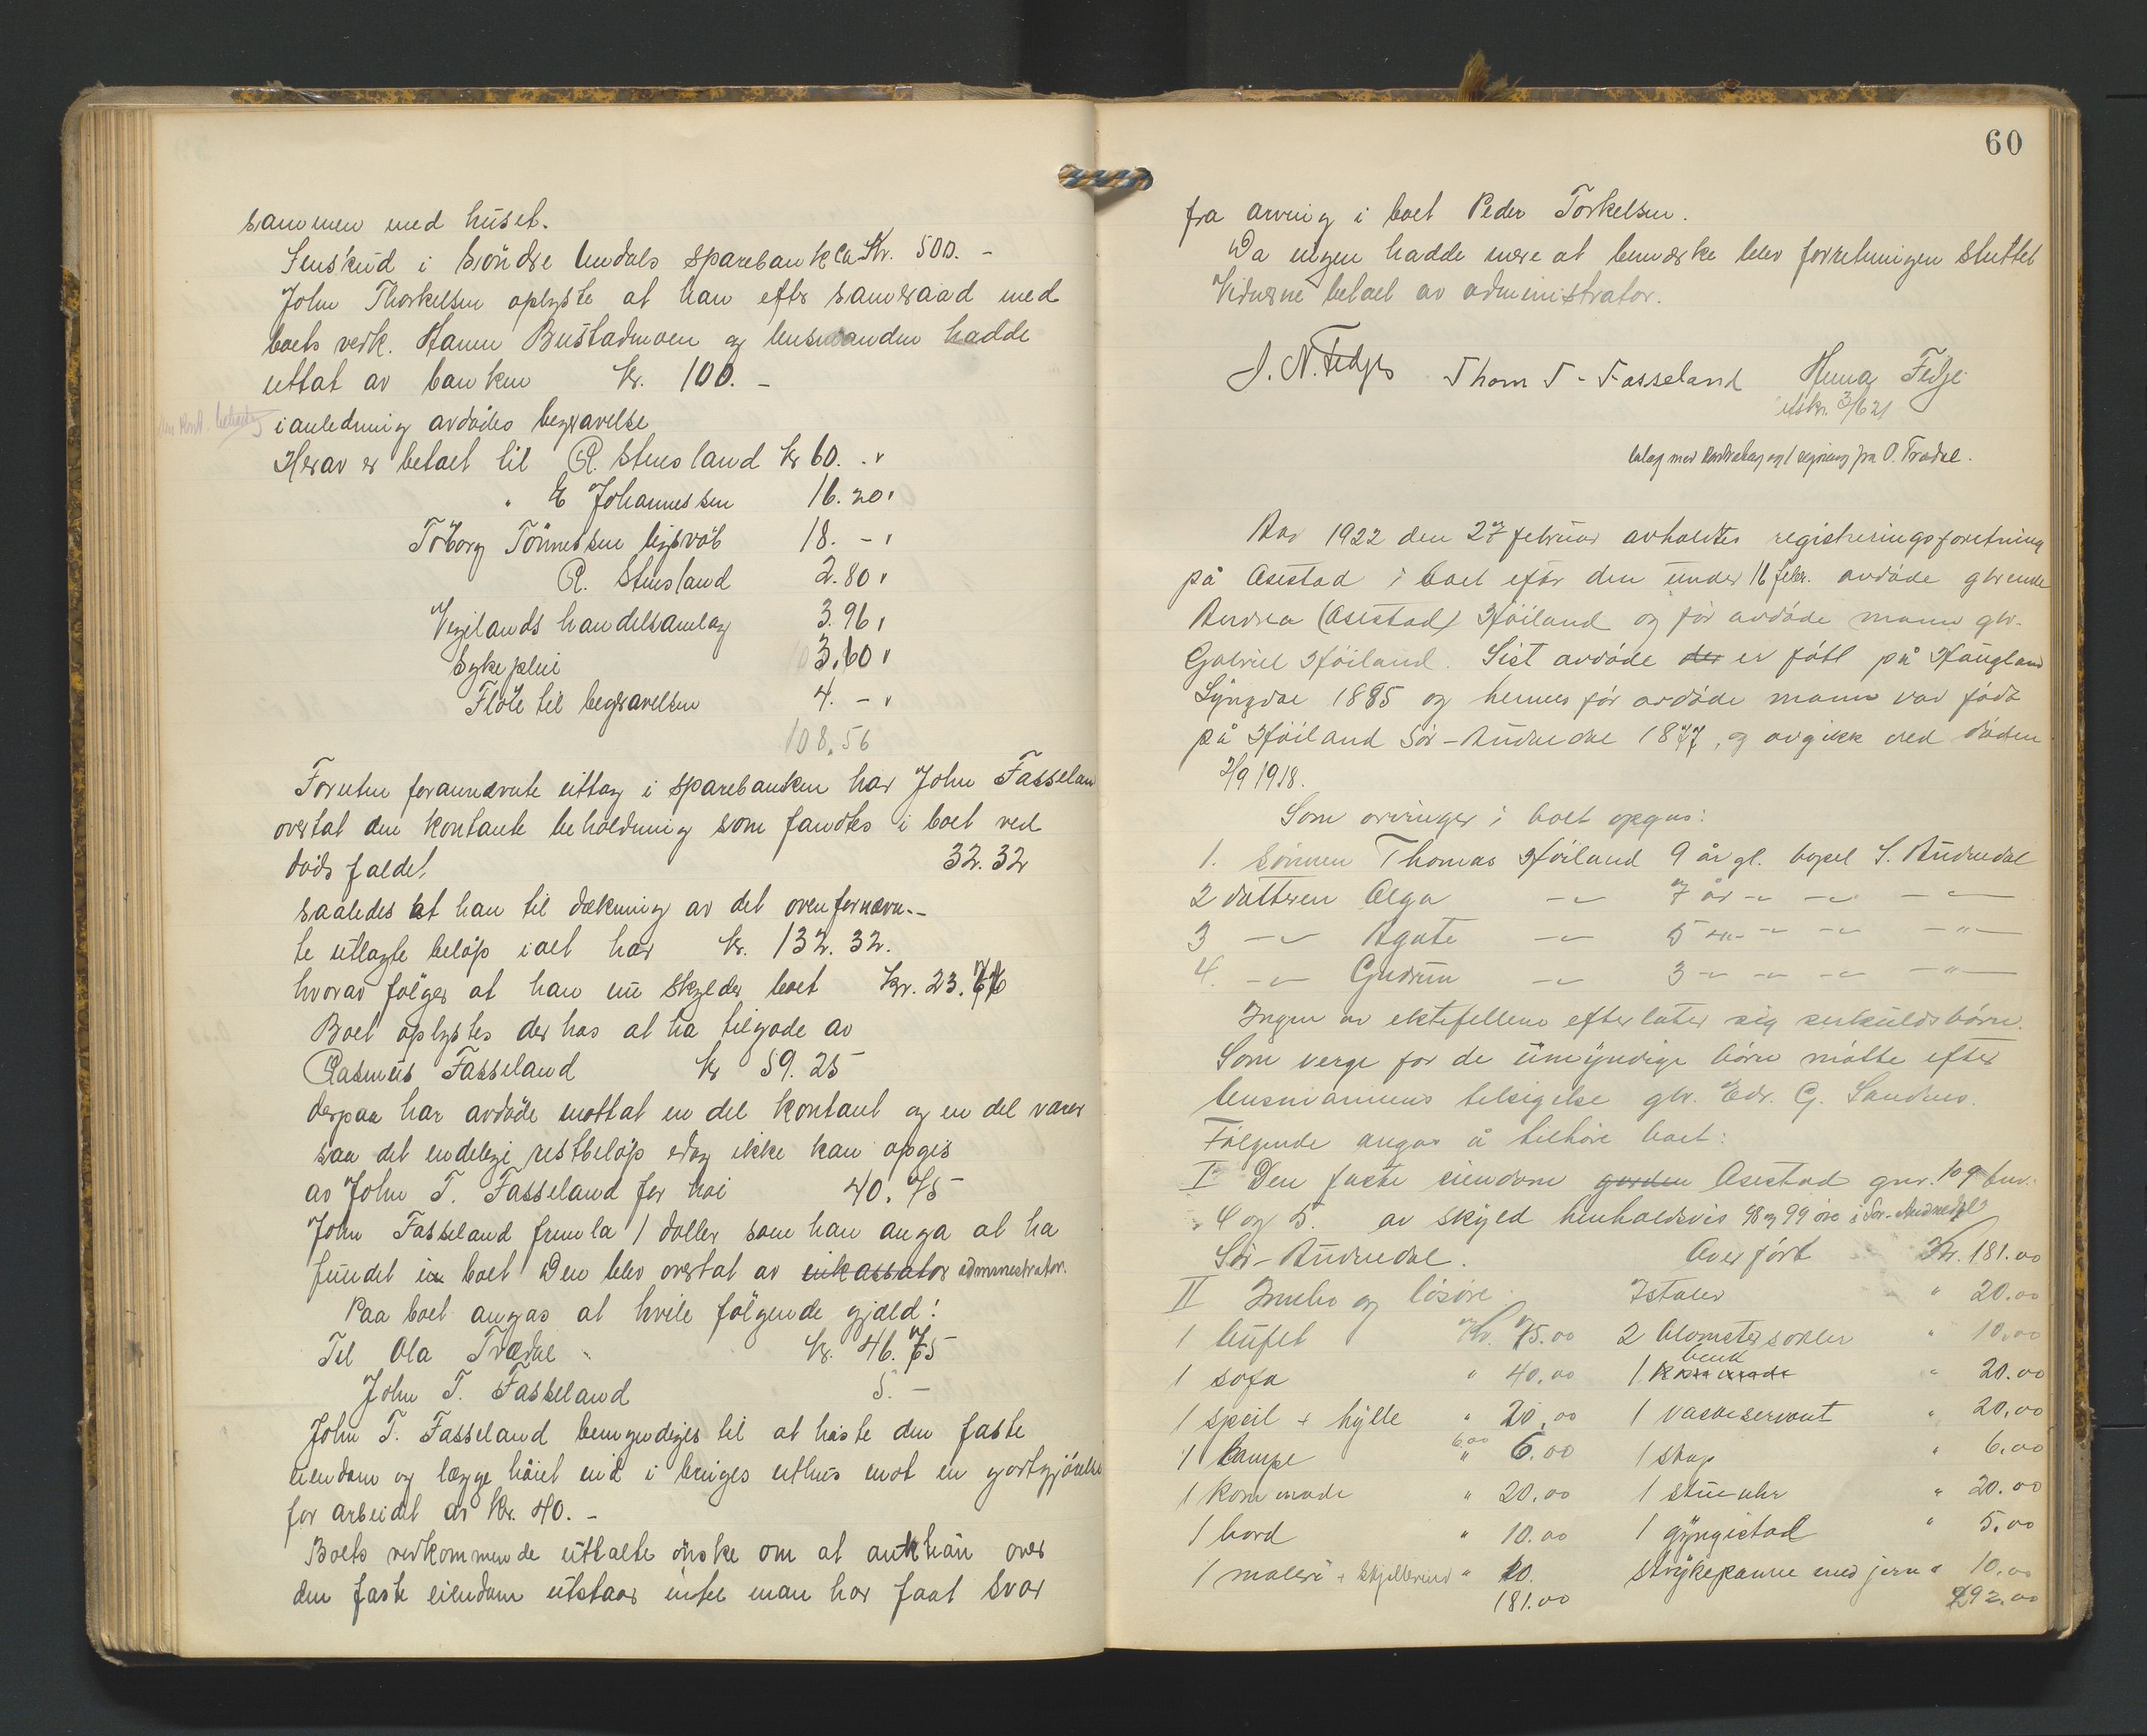 sammen med huset.
Innskud i Söndre Undals Sparebank ca Kr. 500. -
John Thorkelsen oplyste at han efter samraad med
boets vedk. Hanen Bustadmoen og lensmanden hadde
uttat av banken kr. 100. -
i anledning avdødes begravelse
Herav er betalt til R. Stensland kr 60. -
" E Johannessen 16.20
Töborg Tönnessen ligsvöb 18. -
R. Stensland 2.80
Vigelands handelsamlag 3.96
Sykepleie 3.60
Flöte til begravelsen 4. -
108.56
Foruten forannævnte uttag i sparebanken har John Fasseland
overtat den kontante beholdning som fandtes i boet ved
dödsfaldet 32.32
saaledes at han til dækning av det ovenfornævn-
te utlagte belöp i alt har kr. 132.32.
hvorav fölger at han nu skylder boet kr. 23.76
Boet oplystes derhos at ha tilgode av
Rasmus Fasseland kr 59.25
derpaa har avdöde mottat en del kontant og en del varer
saa det endelige restbelöp idag ikke kan opgis
av John T. Fasseland for höi 40.75
John Fasseland fremla 1 daller som han anga at ha
fundet i boet Den blev overtat av inkassator administrator.
Paa boet angas at hvile fölgende gjæld:
Til Ola Trædal kr. 46.75
John T. Fasseland 5. -
John T. Fasseland bemyndiges til at höste den faste
eiendom og lægge höiet ind i bruges uthus mot en godtgjörelse
for arbeidet av kr. 40. -
Boets vedkommende uttalte önske om at auktion over
den faste eiendom utstaar indtil man har faat svar
60
fra arving i boet Peder Torkelsen.
Da ingen hadde mere at bemerke blev forretningen sluttet
Vidnerne betalt av administrator.
J. N. Fedje Thom T. Fasseland Henrg Fedje
utskr. 3/6 21
bilag med og 1 regning fra O. Trædal.
Aar 1922 den 27 februar avholdtes registreringsforetning
på Åsestad i boet efter den under 16 febr. avdöde gbrenke
Andrea (Åsestad) Höiland og för avdöde mann gbr.
Gabriel Höiland. Sist avdöde der er född på Haugland
Lyngdal 1885 og hennes för avdöde mann var född
på Höiland Sör-Audnedal 1877, og avgikk ved döden
2/9 1918.
Som arvinger i boet opgas:
1. Sönnen Thomas Höiland 9 år gl. bopel S. Audnedal
2 datteren Olga -"- 7 år -"- -"- -"-
3 -"- Agate -"- 5 -"- -"- -"- -"-
4. -"- Gudrun -"- 3 -"- -"- -"- -"-
Ingen av ektefellene efterlater sig serkuldsbörn.
Som verge for de umyndige börn mötte efter
lensmannens tilsigelse gbr. Edv. G. Sandnes.
Fölgende angas å tilhöre boet:
I Den faste eiendom garden Åsestad gnr. 109 bnr.
4 og 5. av skyld henholdsvis 98 og 99 öre i Sör-Audnedal
Sör-Audnedal. Overfört Kr. 181.00
II Innbo og lösöre. 7 stoler " 20.00
1 buffet Kr. 75.00 2 blomstersöiler " 10.00
1 sofa " 40.00 1 kommode benk " 20.00
1 speil + hylle " 20.00 1 vaskeservant " 20.00
1 lampe " 6.00 6.00 1 skap " 6.00
1 kommode " 20.00 1 stueuhr " 20.00
1 bord " 10.00 1 gyngestol " 5.00
1 maleri + skjilleri " 10. strykepanne med jern " 10.00
181.00 292.00